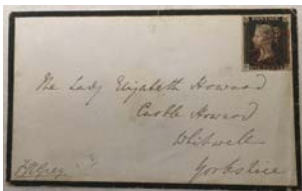 POSTAGE
The Lady Elizabeth Howard
Castle Howard
Whitwell
Yorkshire